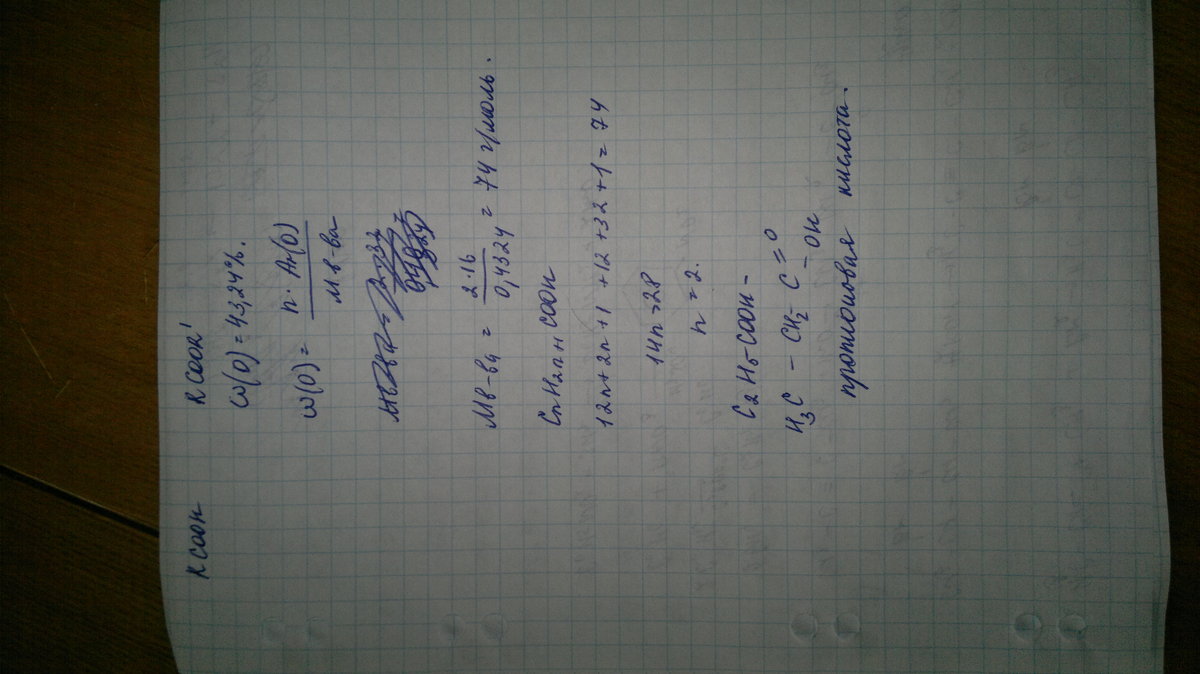 RCOOH RCOOR'
ω(O) = 43,24%.
ω(O) = n · Ar(O) / M в-ва
M в-ва = 2·16 / 0,4324 = 74 г/моль.
CnH2n+1COOH
12n+2n+1+12+32+1=74
14n=28
n=2.
C2H5-COOH -
H3C - CH2 - C = O
- OH
пропионовая кислота.